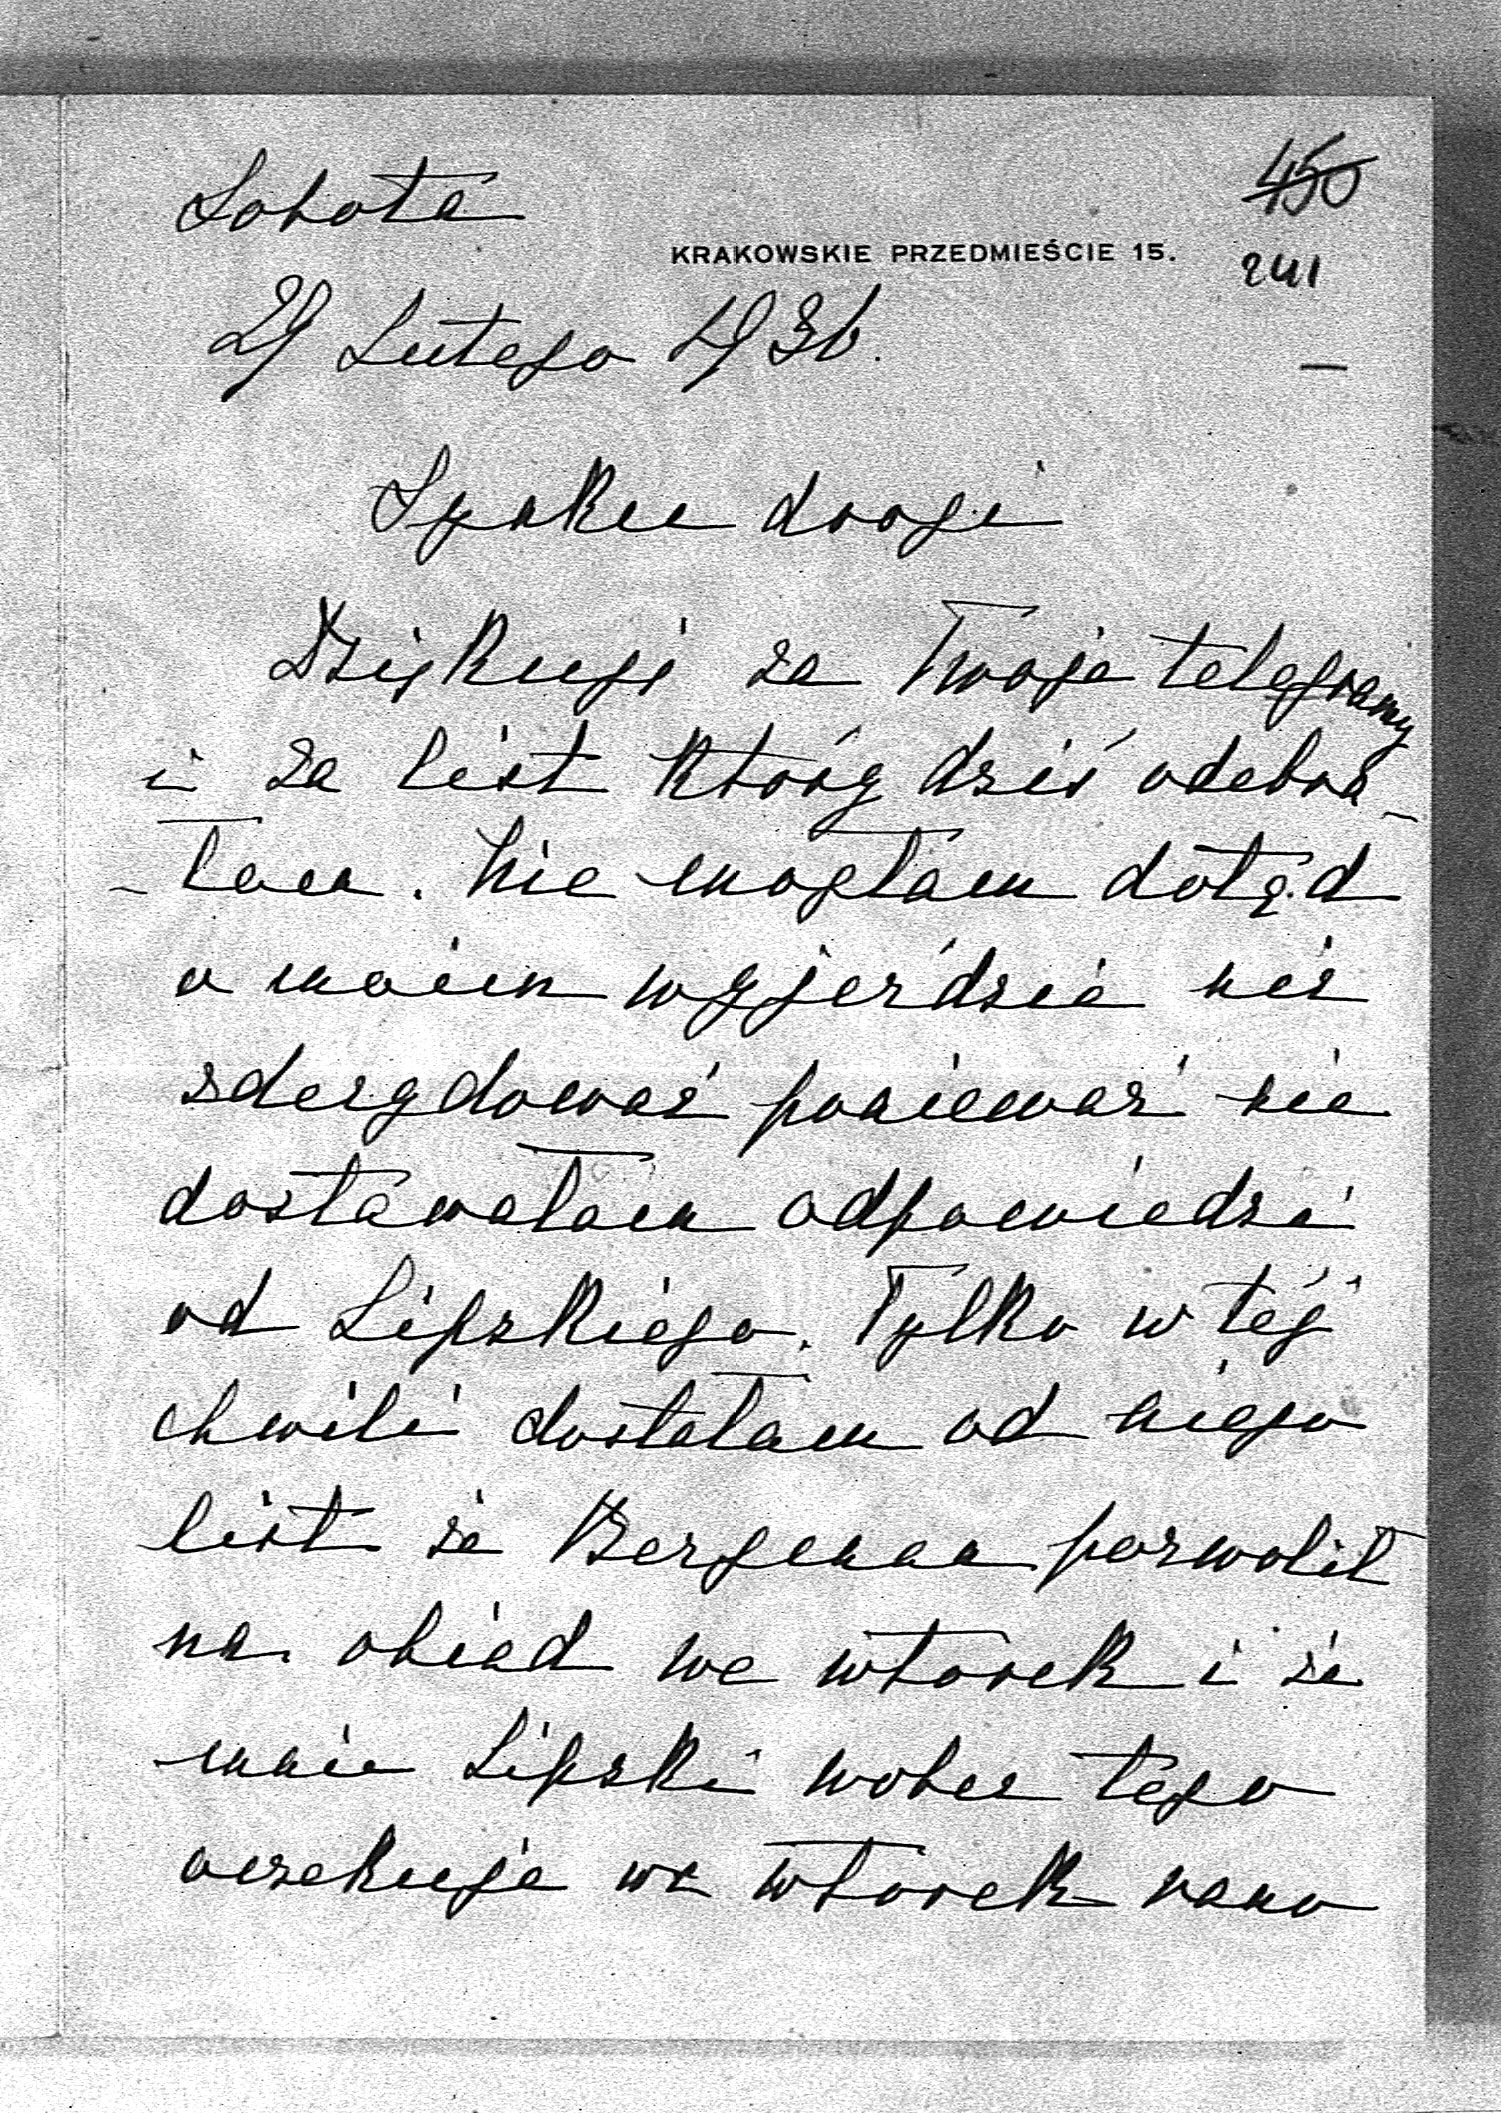 Sobota
450
KRAKOWSKIE PRZEDMIEŚCIE 15.
241
29 Lutego 1936.
Synku drogi
Dziękuję za Twoje telegramy
i za list który dziś odebra-
-łam. Nie mogłam dotąd
o moim wyjeździe nic
zdecydować ponieważ nie
dostawałam odpowiedzi
od Lipskiego. Tylko w téj
chwili dostałam od niego
list że Bergmann pozwolił
na obiad we wtorek i że
mnie Lipski wobec tego
oczekuje we wtorek rano